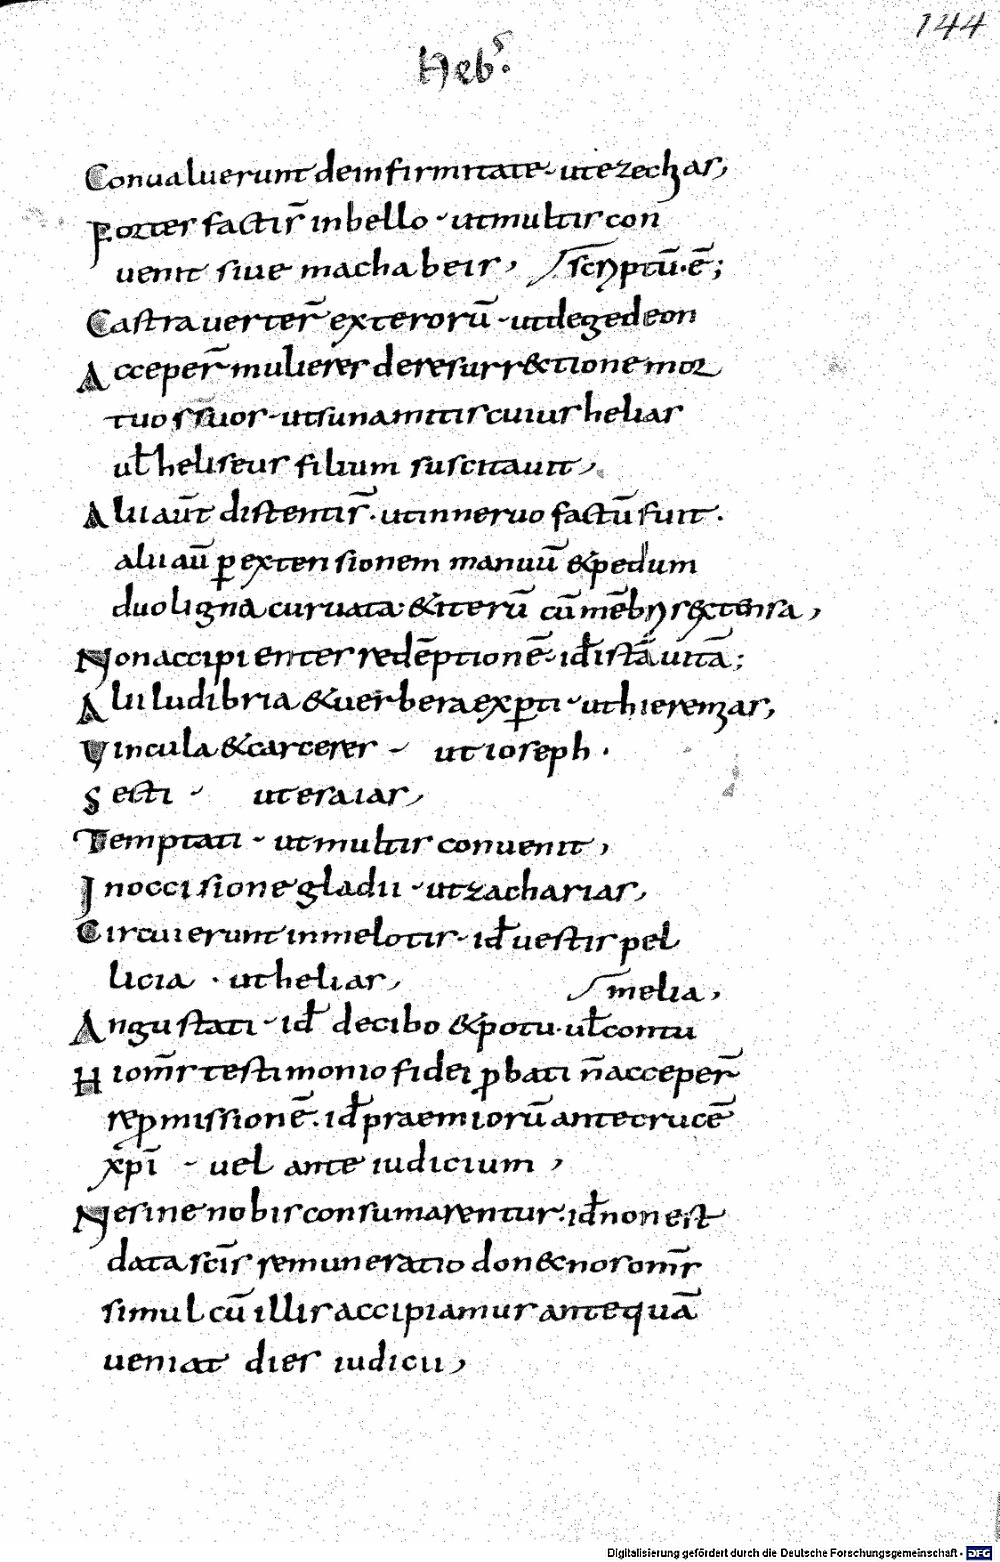 144
Heb͛.
Conualuerunt deinfirmitate · ut ezechias,
Fortes facti s̄ inbello · ut multis con
uenit siue machabeis, scriptū· ē;
Castra uerter̄ exterorū · ut degedeon
Acceper̄ mulieres de resurrectione mor
tuos suos · ut sunamitis cuius helias
ul̄ heliseus filium suscitauit,
Alii aūt distenti s̄ · ut in neruo factū fuit ·
alii aū ꝑ extensionem manuū & pedum
duo ligna curuata · & iterū cū mēbris extensa,
Non accipientes redēptionē · id istā uitā;
Alii ludibria & uerbera exꝑti · ut hieremias,
Vincula & carceres · ut ioseph ·
Secti · ut esaias,
Temptati · ut multis conuenit,
In occisione gladii · ut zacharias,
Circuierunt in melotis · id uestis pel
licia · ut helias, melia,
Angustati · id de cibo & potu · ul̄ contu
Hi om̄s testimonio fidei ꝓbati n̄ acceper̄
reꝓmissionē · id praemiorū ante crucē
xp̄i · uel ante iudicium,
Ne sine nobis consumarentur · id non est
data sc̄is remuneratio donec nos om̄s
simul cū illis accipiamur antequā
ueniat dies iudicii,
Digitalisierung gefördert durch die Deutsche Forschungsgemeinschaft - DFG